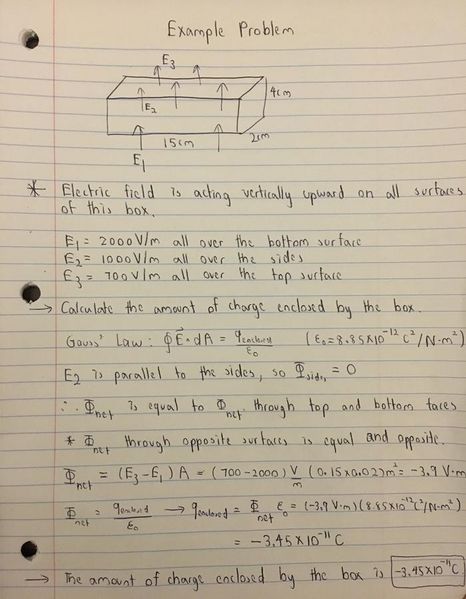 Example Problem
E₃
E₂
4cm
15cm
2cm
E₁
* Electric field is acting vertically upward on all surfaces
of this box.
E₁ = 2000 V/m all over the bottom surface
E₂ = 1000 V/m all over the sides
E₃ = 700 V/m all over the top surface
→ Calculate the amount of charge enclosed by the box.
Gauss' Law : ∮E⃗·dA = q_enclosed/ε₀ (ε₀=8.85×10⁻¹² C²/N·m²)
E₂ is parallel to the sides, so Φ_sides = 0
∴ Φ_net is equal to Φ_net through top and bottom faces
* Φ_net through opposite surfaces is equal and opposite.
Φ_net = (E₃-E₁)A = (700-2000) V/m (0.15×0.02)m² = -3.9 V·m
Φ_net = q_enclosed/ε₀ → q_enclosed = Φ_net ε₀ = (-3.9 V·m)(8.85×10⁻¹² C²/N·m²)
= -3.45×10⁻¹¹ C
→ The amount of charge enclosed by the box is -3.45×10⁻¹¹ C